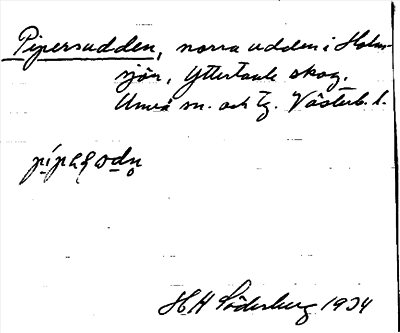 Pipersudden, norra udden i Holm-
sjön, Yttertavle skog.
Umeå sn. och tg. Västerb. l.
H H Söderberg 1934